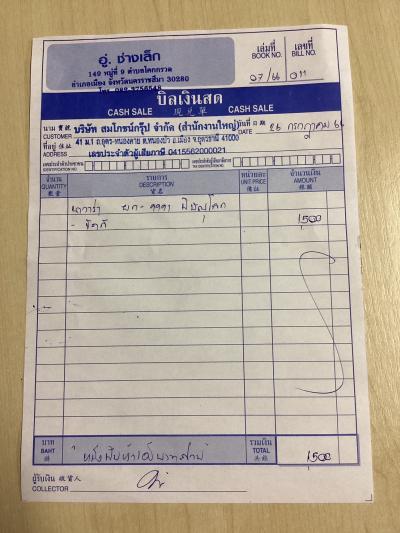 อู่. ช่างเล็ก
149 หมู่ที่ 9 ตำบลโคกกรวด
อำเภอเมือง จังหวัดนครราชสีมา 30280
เล่มที่ เลขที่
BOOK NO. BILL NO.
07/66 011
บิลเงินสด
CASH SALE 現兌單 CASH SALE
นาม 寶號 บริษัท สมโภชน์กรุ๊ป จำกัด (สำนักงานใหญ่) วันที่ 日期 26 กรกฎาคม 66
CUSTOMER DATE
ที่อยู่ 住址 41 ม.1 ถ.อุดร-หนองคาย ต.หนองบัว อ.เมือง จ.อุดรธานี 41000
ADDRESS เลขประจำตัวผู้เสียภาษี 0415562000021
จำนวน รายการ หน่วยละ จำนวนเงิน
QUANTITY DESCRIPTION UNIT PRICE AMOUNT
數量 貨名 價銀 銀額
นาวาร่า ผก-9991 พิษณุโลก
- ขัดสี 1,500
บาท รวมเงิน
BAHT หนึ่งพันห้าร้อยบาทถ้วน TOTAL 1,500
銖 共銀
ผู้รับเงิน 收貨人
COLLECTOR